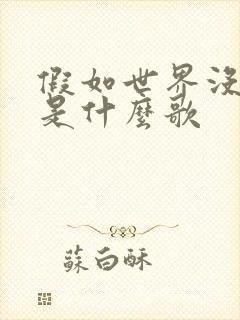 假如世界沒
是什麼歌
蘇白酥